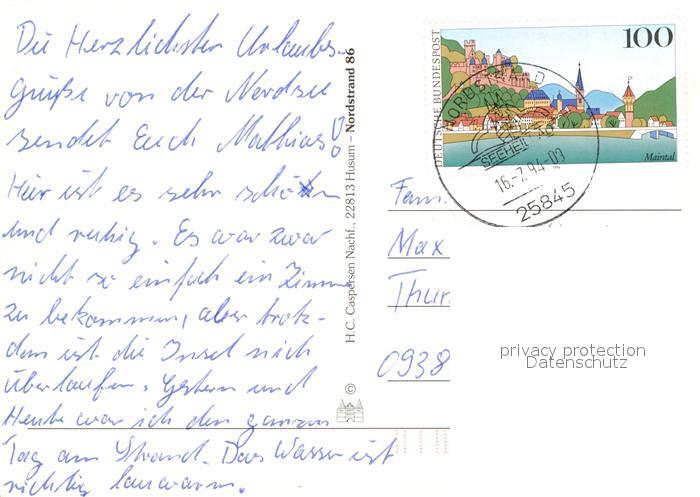 Die Herzlichsten Urlaubs-
grüße von der Nordsee
sendet Euch Mathias!
Hier ist es sehr schön
und ruhig. Es war zwar
nicht so einfach ein Zimmer
zu bekommen, aber trotz-
dem ist die Insel nich
überlaufen. Gestern und
Heute war ich den ganzen
Tag am Strand. Das Wasser ist
richtig lauwarm.
H.C. Caspersen Nachf., 22813 Husum – Nordstrand 86
©
DEUTSCHE BUNDESPOST
100
Maintal
NORDSTRAND
SEEHEILBAD
16.-7.94-09
25845
Fam.
Max
Thur
0938
privacy protection
Datenschutz